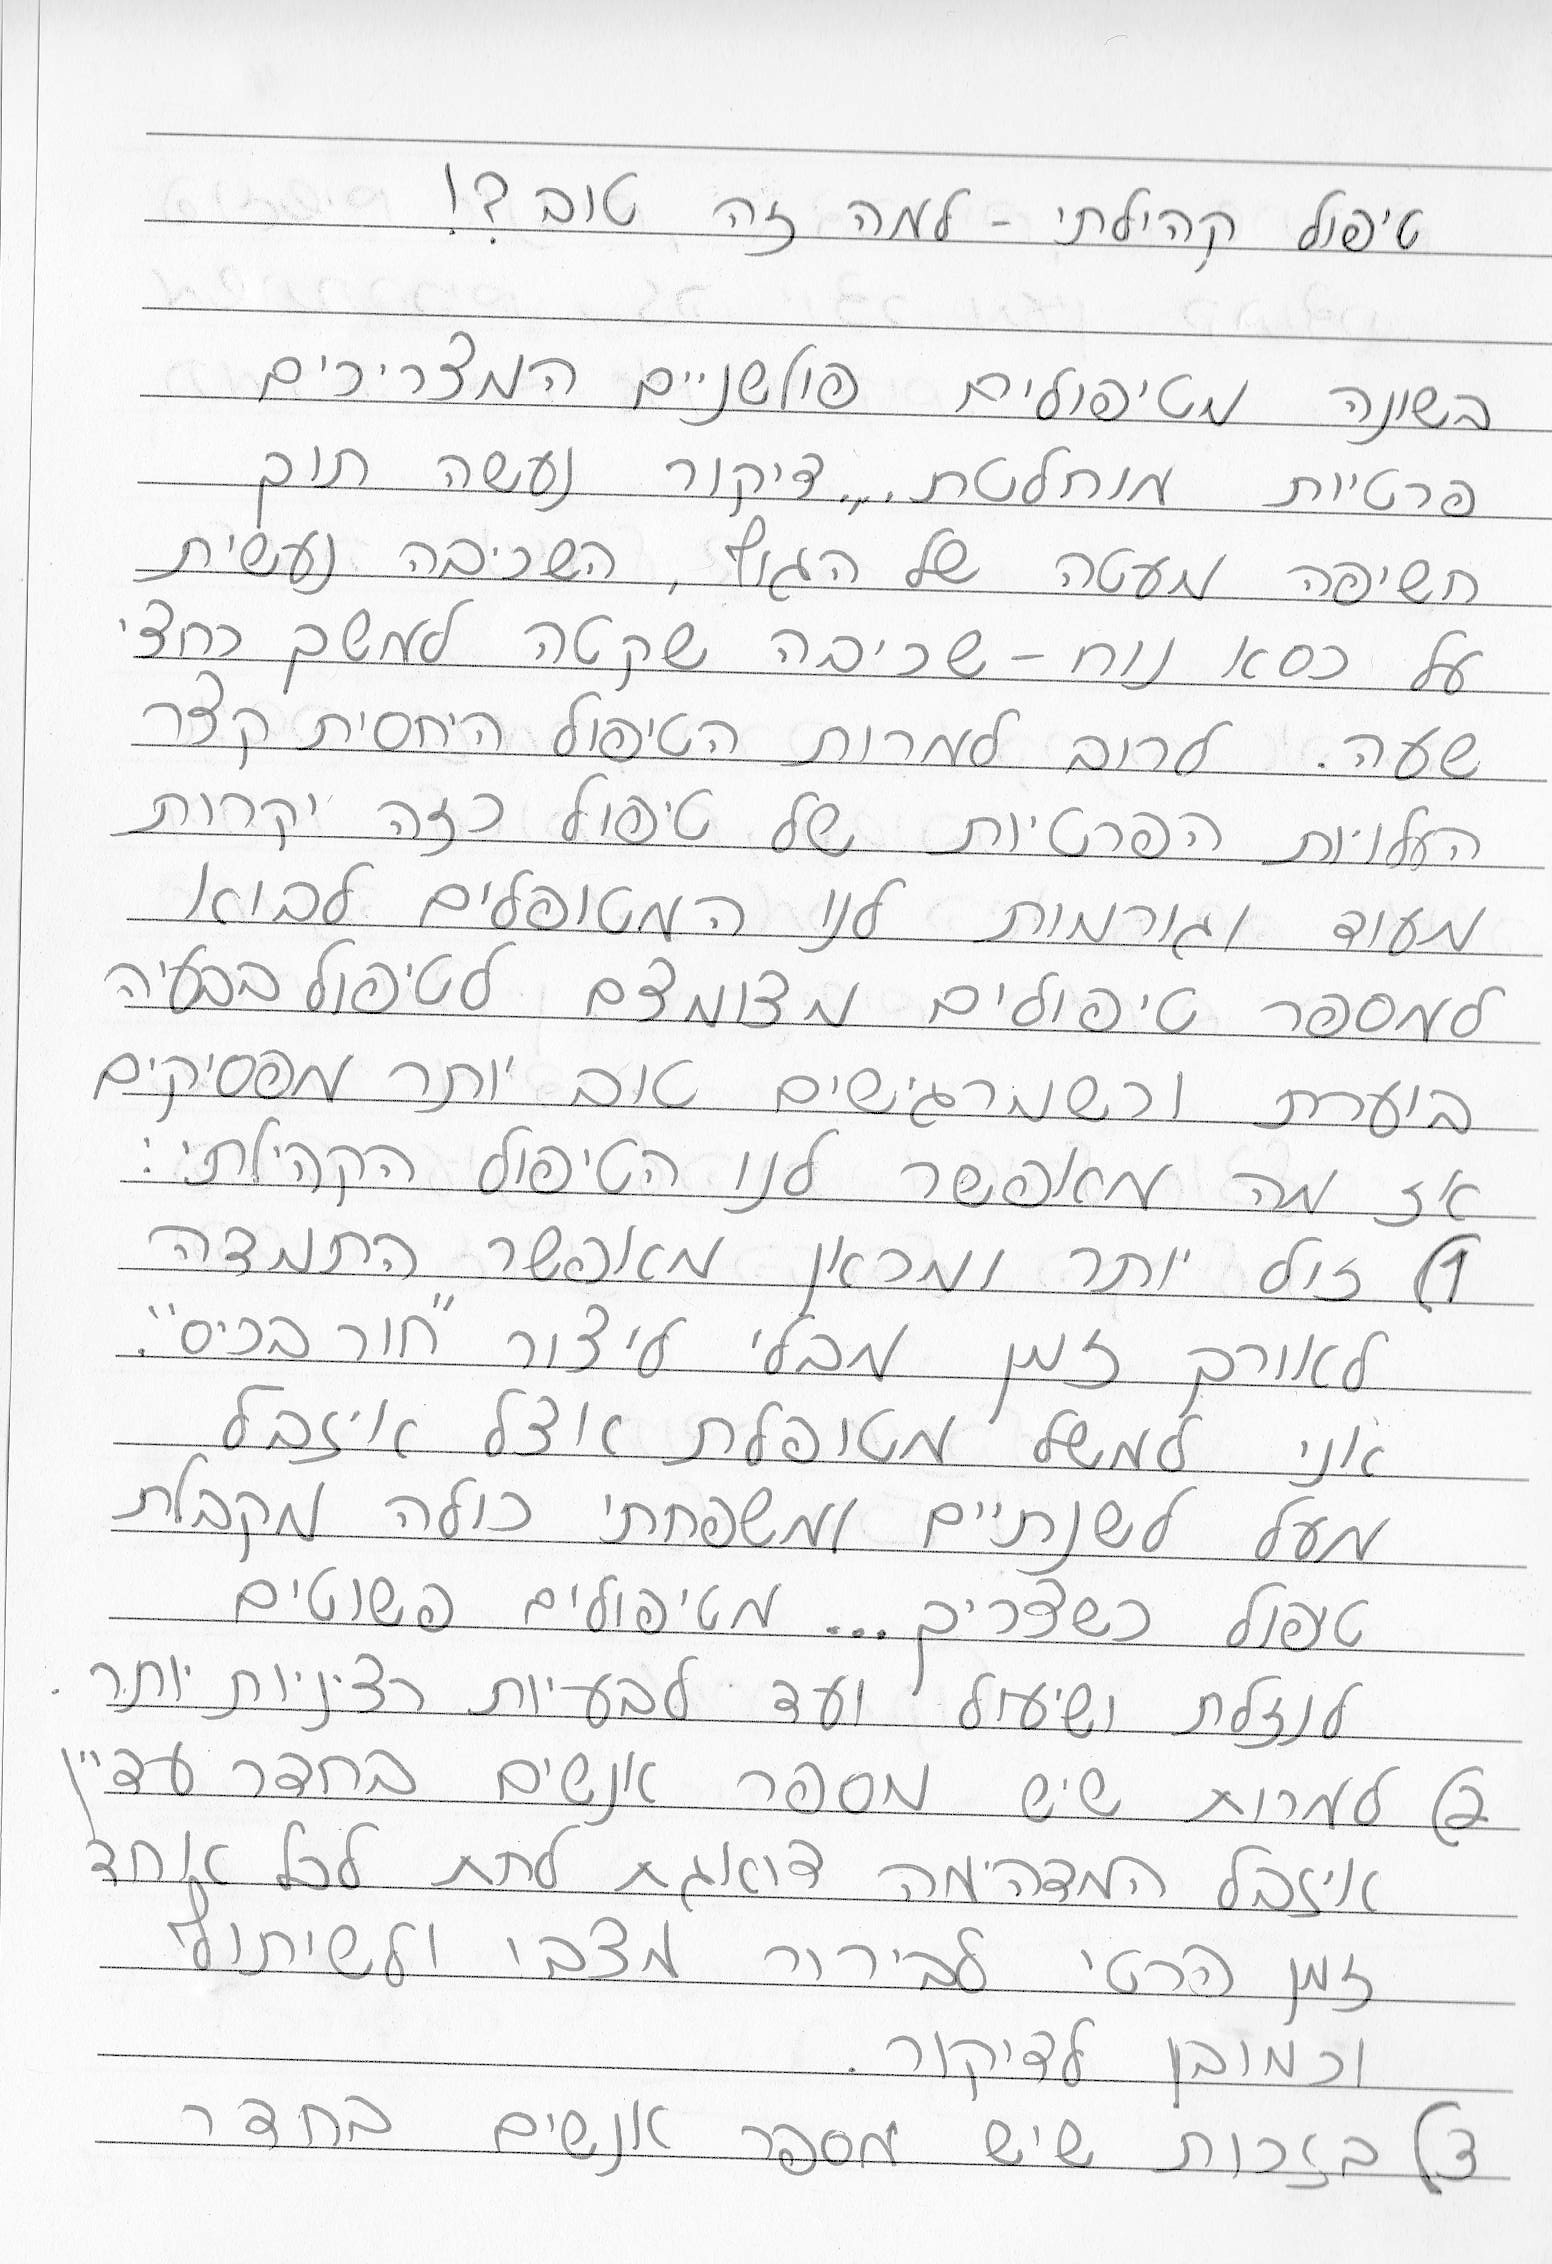 טיפול קהילתי - למה זה טוב?!
בשונה מטיפולים פולשניים המצריכים
פרטיות מוחלטת... דיקור נעשה תוך
חשיפה מעטה של הגוף, השכיבה נעשית
על כסא נוח - שכיבה שקטה למשך כחצי
שעה. לרוב למרות הטיפול היחסית קצר
העלויות הפרטיות של טיפול כזה יקרות
מעוד וגורמות לנו המטופלים לבוא
למספר טיפולים מצומצם לטיפול בבעיה
בוערת וכשמרגישים טוב יותר מפסיקים
אז מה מאפשר לנו הטיפול הקהילתי:
1) זול יותר ומכאן מאפשר התמדה
לאורך זמן מבלי ליצור "חור בכיס".
אני למשל מטופלת אצל איזבל
מעל לשנתיים ומשפחתי כולה מקבלת
טיפול כשצריך... מטיפולים פשוטים
לנזלת ושיעול ועד לבעיות רציניות יותר.
2) למרות שיש מספר אנשים בחדר עדיין
איזבל המדהימה דואגת לתת לכל אחד
זמן פרטי לבירור מצבו ולשיתוף
וכמובן לדיקור.
3) בזכות שיש מספר אנשים בחדר